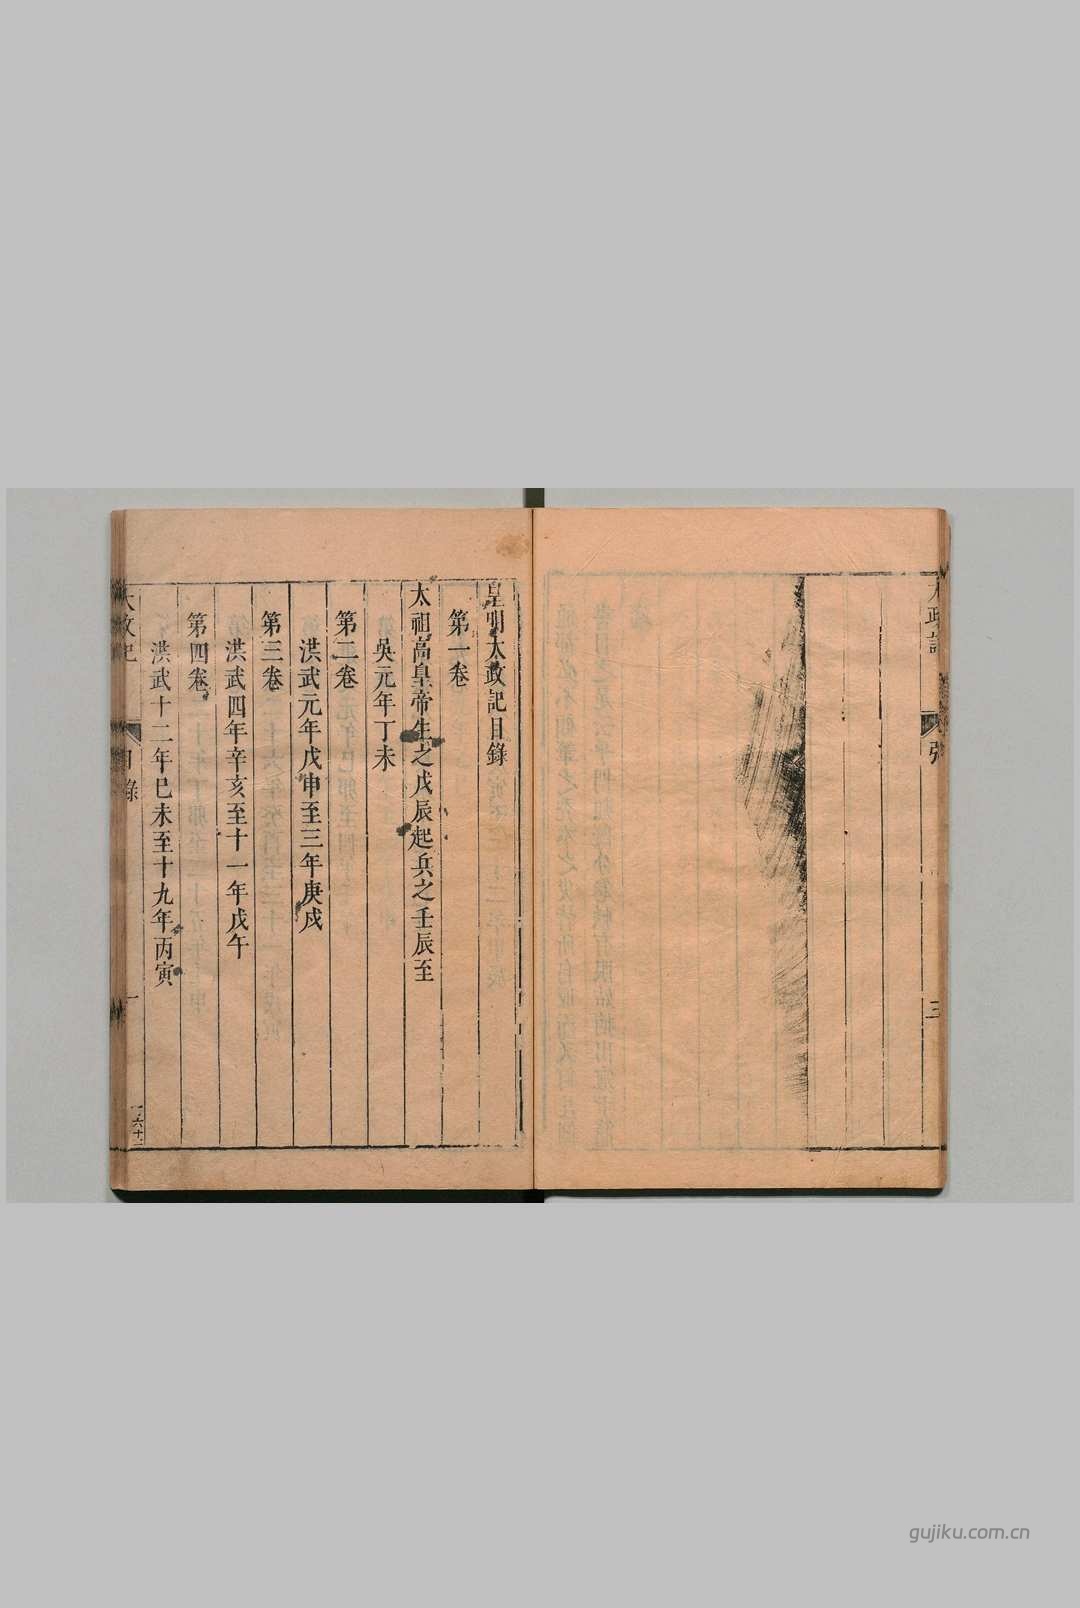 大政記
三
皇明大政記目錄
第一卷
太祖高皇帝生之戊辰起兵之壬辰至
吳元年丁未
第二卷
洪武元年戊申至三年庚戌
第三卷
洪武四年辛亥至十一年戊午
第四卷
洪武十二年巳未至十九年丙寅
大政記
目錄
一
gujiku.com.cn